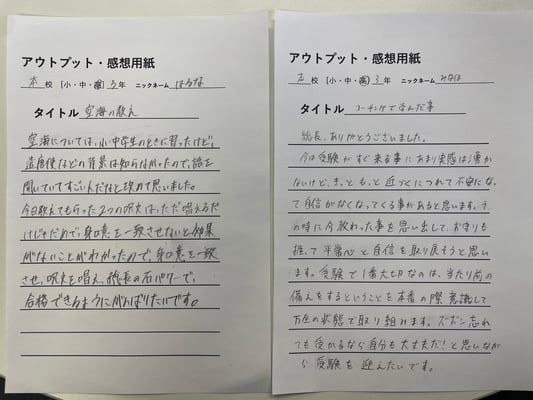 アウトプット・感想用紙
本 校 [小・中・高] 3年 ニックネーム はるな
タイトル 空海の教え
空海については、小・中学生のときに習ったけど、
遣唐使などの背景は知らなかったので、話を
聞いていてすごい人だなと改めて思いました。
今日教えてもらった2つの呪文は、ただ唱えるだ
けじゃだめで、身口意を一致させないと効果
がないことがわかったので、身口意を一致
させ、呪文を唱え、総長の石パワーで、
合格できるようにがんばりたいです。
アウトプット・感想用紙
本 校 [小・中・高] 3年 ニックネーム みなほ
タイトル コーチングで学んだ事
総長、ありがとうございました。
今は受験がすぐ来る事にあまり実感は湧か
ないけど、きっともっと近づくにつれて不安にな
って自信がなくなってくる事があると思います。そ
の時に今教わった事を思い出して、お守りも
持って平常心と自信を取り戻そうと思い
ます。受験で1番大切なのは、当たり前の
備えをするということを本番の際意識して
万全の状態で取り組みます。ズボン忘れ
ても受かるなら自分も大丈夫だ！と思いなが
ら受験を迎えたいです。